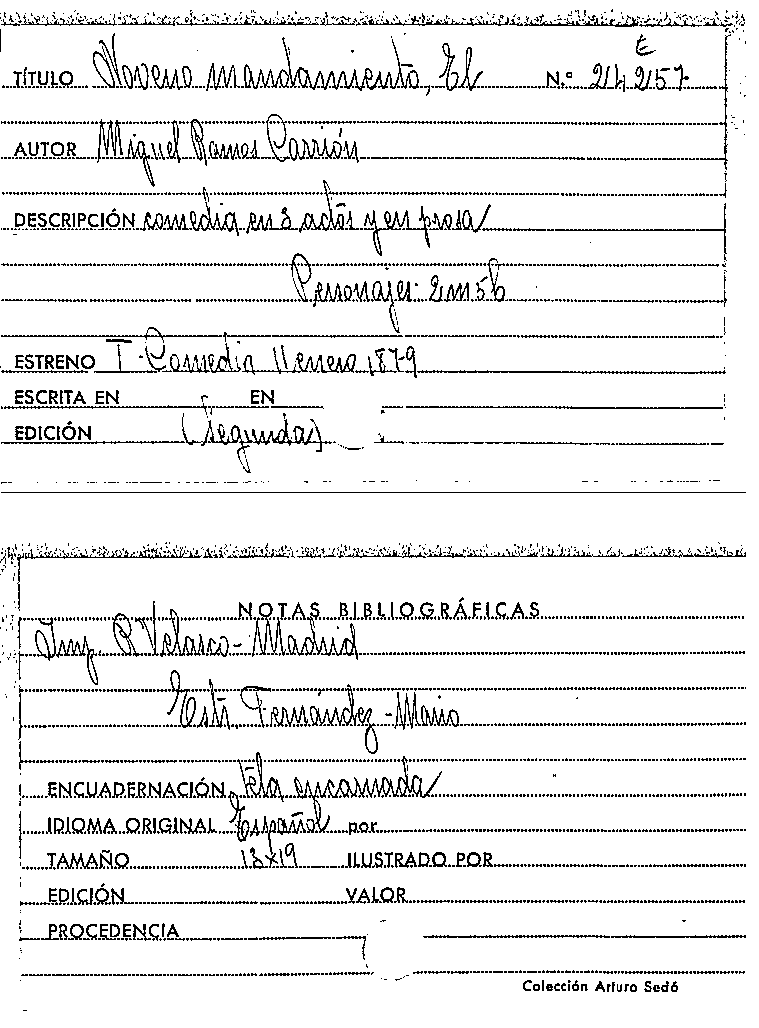 E
TÍTULO Noveno mandamiento, El N.º 242157
AUTOR Miguel Ramos Carrión
DESCRIPCIÓN comedia en 3 actos y en prosa
Personajes: 2m5h
ESTRENO T. Comedia 11 enero 1879
ESCRITA EN EN
EDICIÓN (Segunda)
NOTAS BIBLIOGRÁFICAS
Imp R Velasco - Madrid
Estr. Fernández - Mario
ENCUADERNACIÓN Tela encarnada
IDIOMA ORIGINAL Español por
TAMAÑO 13x19 ILUSTRADO POR
EDICIÓN VALOR
PROCEDENCIA
Colección Arturo Sedó